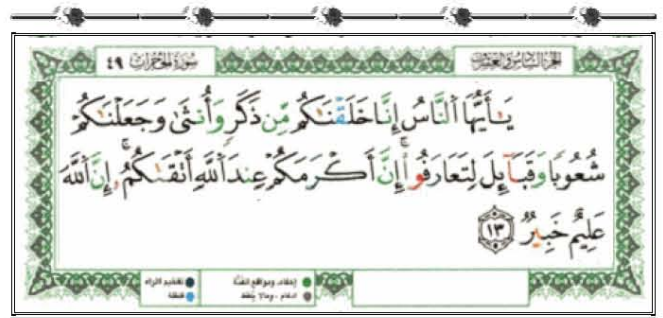 سُورَةُ الحُجُرَات ٤٩
الجزء السادس والعشرون
يَـٰٓأَيُّهَا ٱلنَّاسُ إِنَّا خَلَقْنَـٰكُم مِّن ذَكَرٍ وَأُنثَىٰ وَجَعَلْنَـٰكُمْ
شُعُوبًا وَقَبَآئِلَ لِتَعَارَفُوٓا۟ ۚ إِنَّ أَكْرَمَكُمْ عِندَ ٱللَّهِ أَتْقَىٰكُمْ ۚ إِنَّ ٱللَّهَ
عَلِيمٌ خَبِيرٌ ١٣
إخفاء، ومواقع الغنّة
تفخيم الراء
ادغام، ومالا يُلفظ
قلقلة